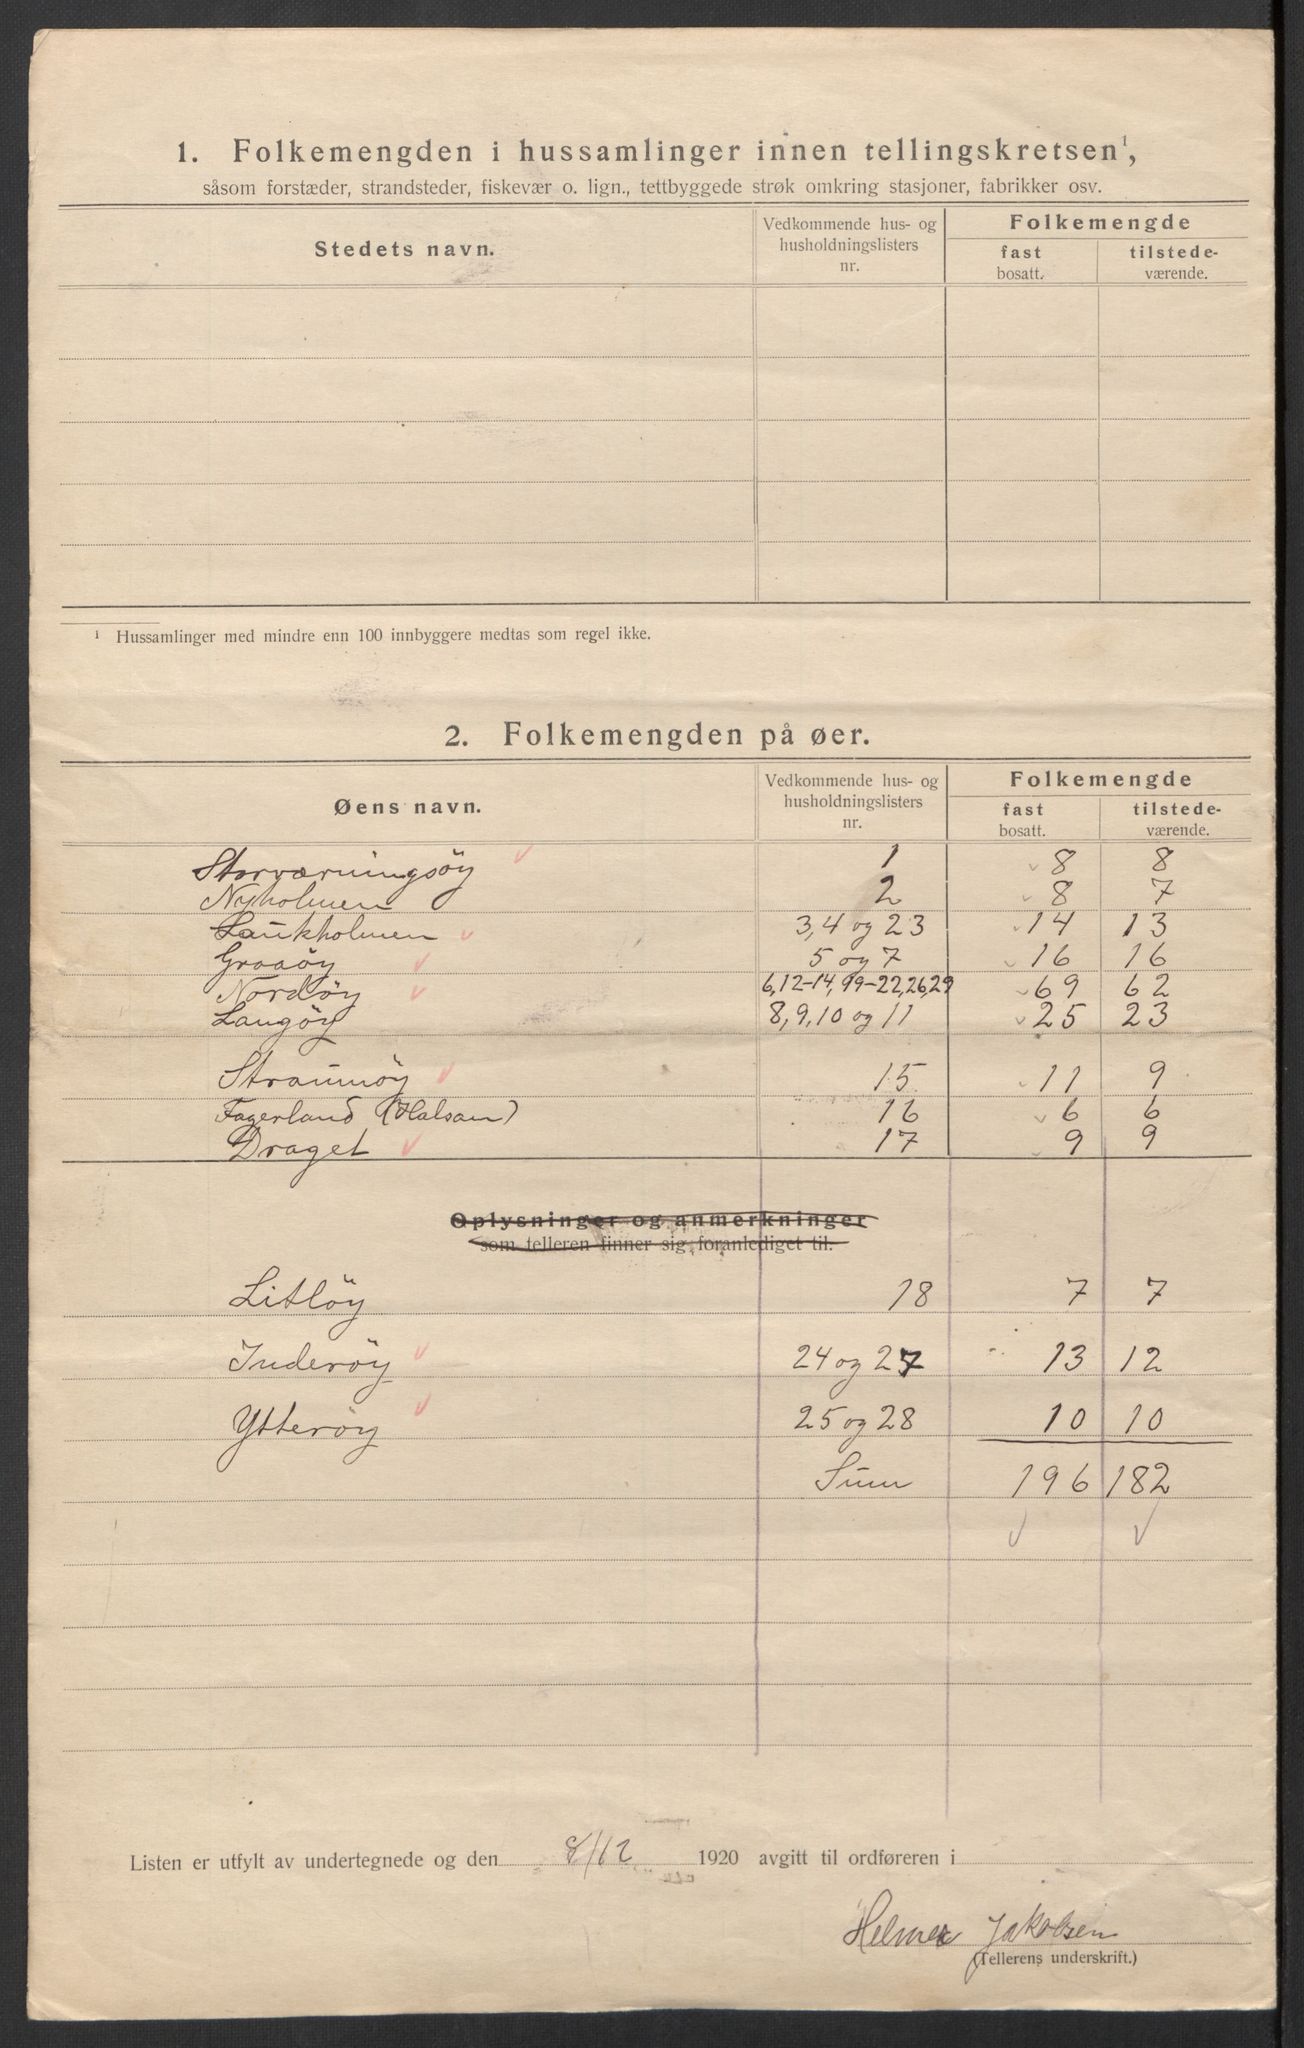 1. Folkemengden i hussamlinger innen tellingskretsen¹,
såsom forstæder, strandsteder, fiskevær o. lign., tettbyggede strøk omkring stasjoner, fabrikker osv.
Stedets navn. Vedkommende hus- og husholdningslisters nr. Folkemengde
fast bosatt. tilstede-værende.
¹ Hussamlinger med mindre enn 100 innbyggere medtas som regel ikke.
2. Folkemengden på øer.
Øens navn. Vedkommende hus- og husholdningslisters nr. Folkemengde
fast bosatt. tilstede-værende.
Storværningsöy 1 8 8
Nyholmen 2 8 7
Laukholmen 3,4 og 23 14 13
Graaöy 5 og 7 16 16
Nordöy 6,12-14,19-22,26,29 69 62
Langöy 8,9,10 og 11 25 23
Straumöy 15 11 9
Fagerland (Halsan) 16 6 6
Draget 17 9 9
Oplysninger og anmerkninger
som telleren finner sig foranlediget til.
Litlöy 18 7 7
Inderöy 24 og 27 13 12
Ytteröy 25 og 28 10 10
Sum 196 182
Listen er utfylt av undertegnede og den 8/12 1920 avgitt til ordføreren i
Helmer Jakobsen
(Tellerens underskrift.)